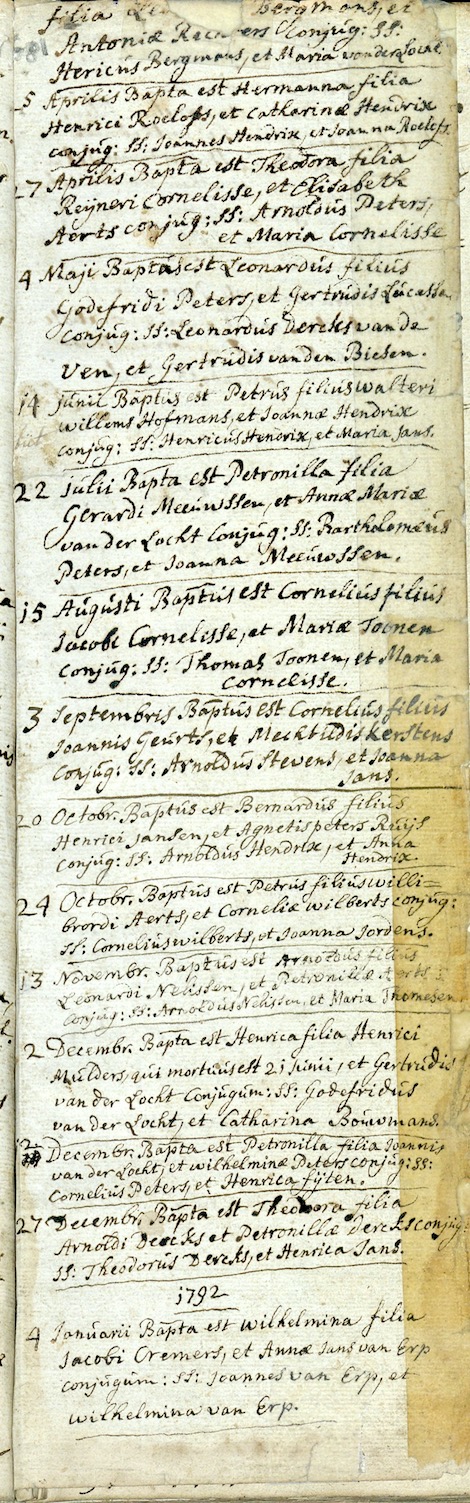 filia Bergmans, et
Antoniæ Conjúg: SS:
Hericus Bergmans, et Maria vander
5 Aprilis Bapta est Hermanna filia
Henrici Roelofs, et Catharinæ Hendrix
conjúg: SS: Joannes Hendrix, et Joanna Roelofs
27 Aprilis Bapta est Theodora filia
Reijneri Cornelisse, et Elisabeth
Aerts conjúg: SS: Arnoldús Peters,
et Maria Cornelisse
4 Maji Baptús est Leonardús filiús
Godefridi Peters, et Gertrúdis Lúcasse
Conjúg: SS: Leonardús Dercks van de
Ven, et Gertrúdis vanden Biesen.
14 Júnii Baptús est Petrús filiús Walteri
Willems Hofmans, et Joannæ Hendrix
Conjúg: SS: Henricús Hendrix, et Maria Jans.
22 Júlii Bapta est Petronilla filia
Gerardi Meeúwssen, et Annæ Mariæ
van der Locht Conjúg: SS: Bartholomeús
Peters, et Joanna Meeúwssen.
15 Aúgústi Baptús est Cornelius filiús
Jacobi Cornelisse, et Mariæ Toonen
Conjúg: SS: Thomas Toonen, et Maria
Cornelisse.
3 Septembris Baptús est Cornelius filiús
Joannis Geúrts, et Mechtúdis Kerstens
Conjúg: SS: Arnoldús Stevens, et Joanna
Jans.
20 Octobr. Baptús est Bernardús filiús
Henrici Jansen, et Agnetis peters Rúijs
Conjúg: SS: Arnoldús Hendrix, et Anna
Hendrix.
24 Octobr. Baptús est Petrús filiús Willi=
brordi Aerts, et Corneliæ Wilberts conjúg:
SS: Cornelius Wilberts, et Joanna Jordens.
13 Novembr. Baptús est Arnoldús filiús
Leonardi Nelissen, et Petronillæ Aerts
Conjúg: SS: Arnoldús Nelissen, et Maria Thomesen
2 Decembr. Bapta est Henrica filia Henrici
Múlders, qui mortúús est 21 Júnii, et Gertrúdis
van der Locht Conjúgúm: SS: Godefridús
van der Locht, et Catharina Boúwmans.
12 Decembr. Bapta est Petronilla filia Joannis
van der Locht, et Wilhelminæ Peters Conjúg: SS:
Cornelius Peters, et Henrica Fijten.
27 Decembr. Bapta est Theodora filia
Arnoldi Dercks et Petronillæ Dercks conjúg:
SS: Theodorús Dercks, et Henrica Jans.
1792
4 Janúarii Bapta est Wilhelmina filia
Jacobi Cremers, et Annæ Jans van Erp
Conjúgúm: SS: Joannes van Erp, et
Wilhelmina van Erp.